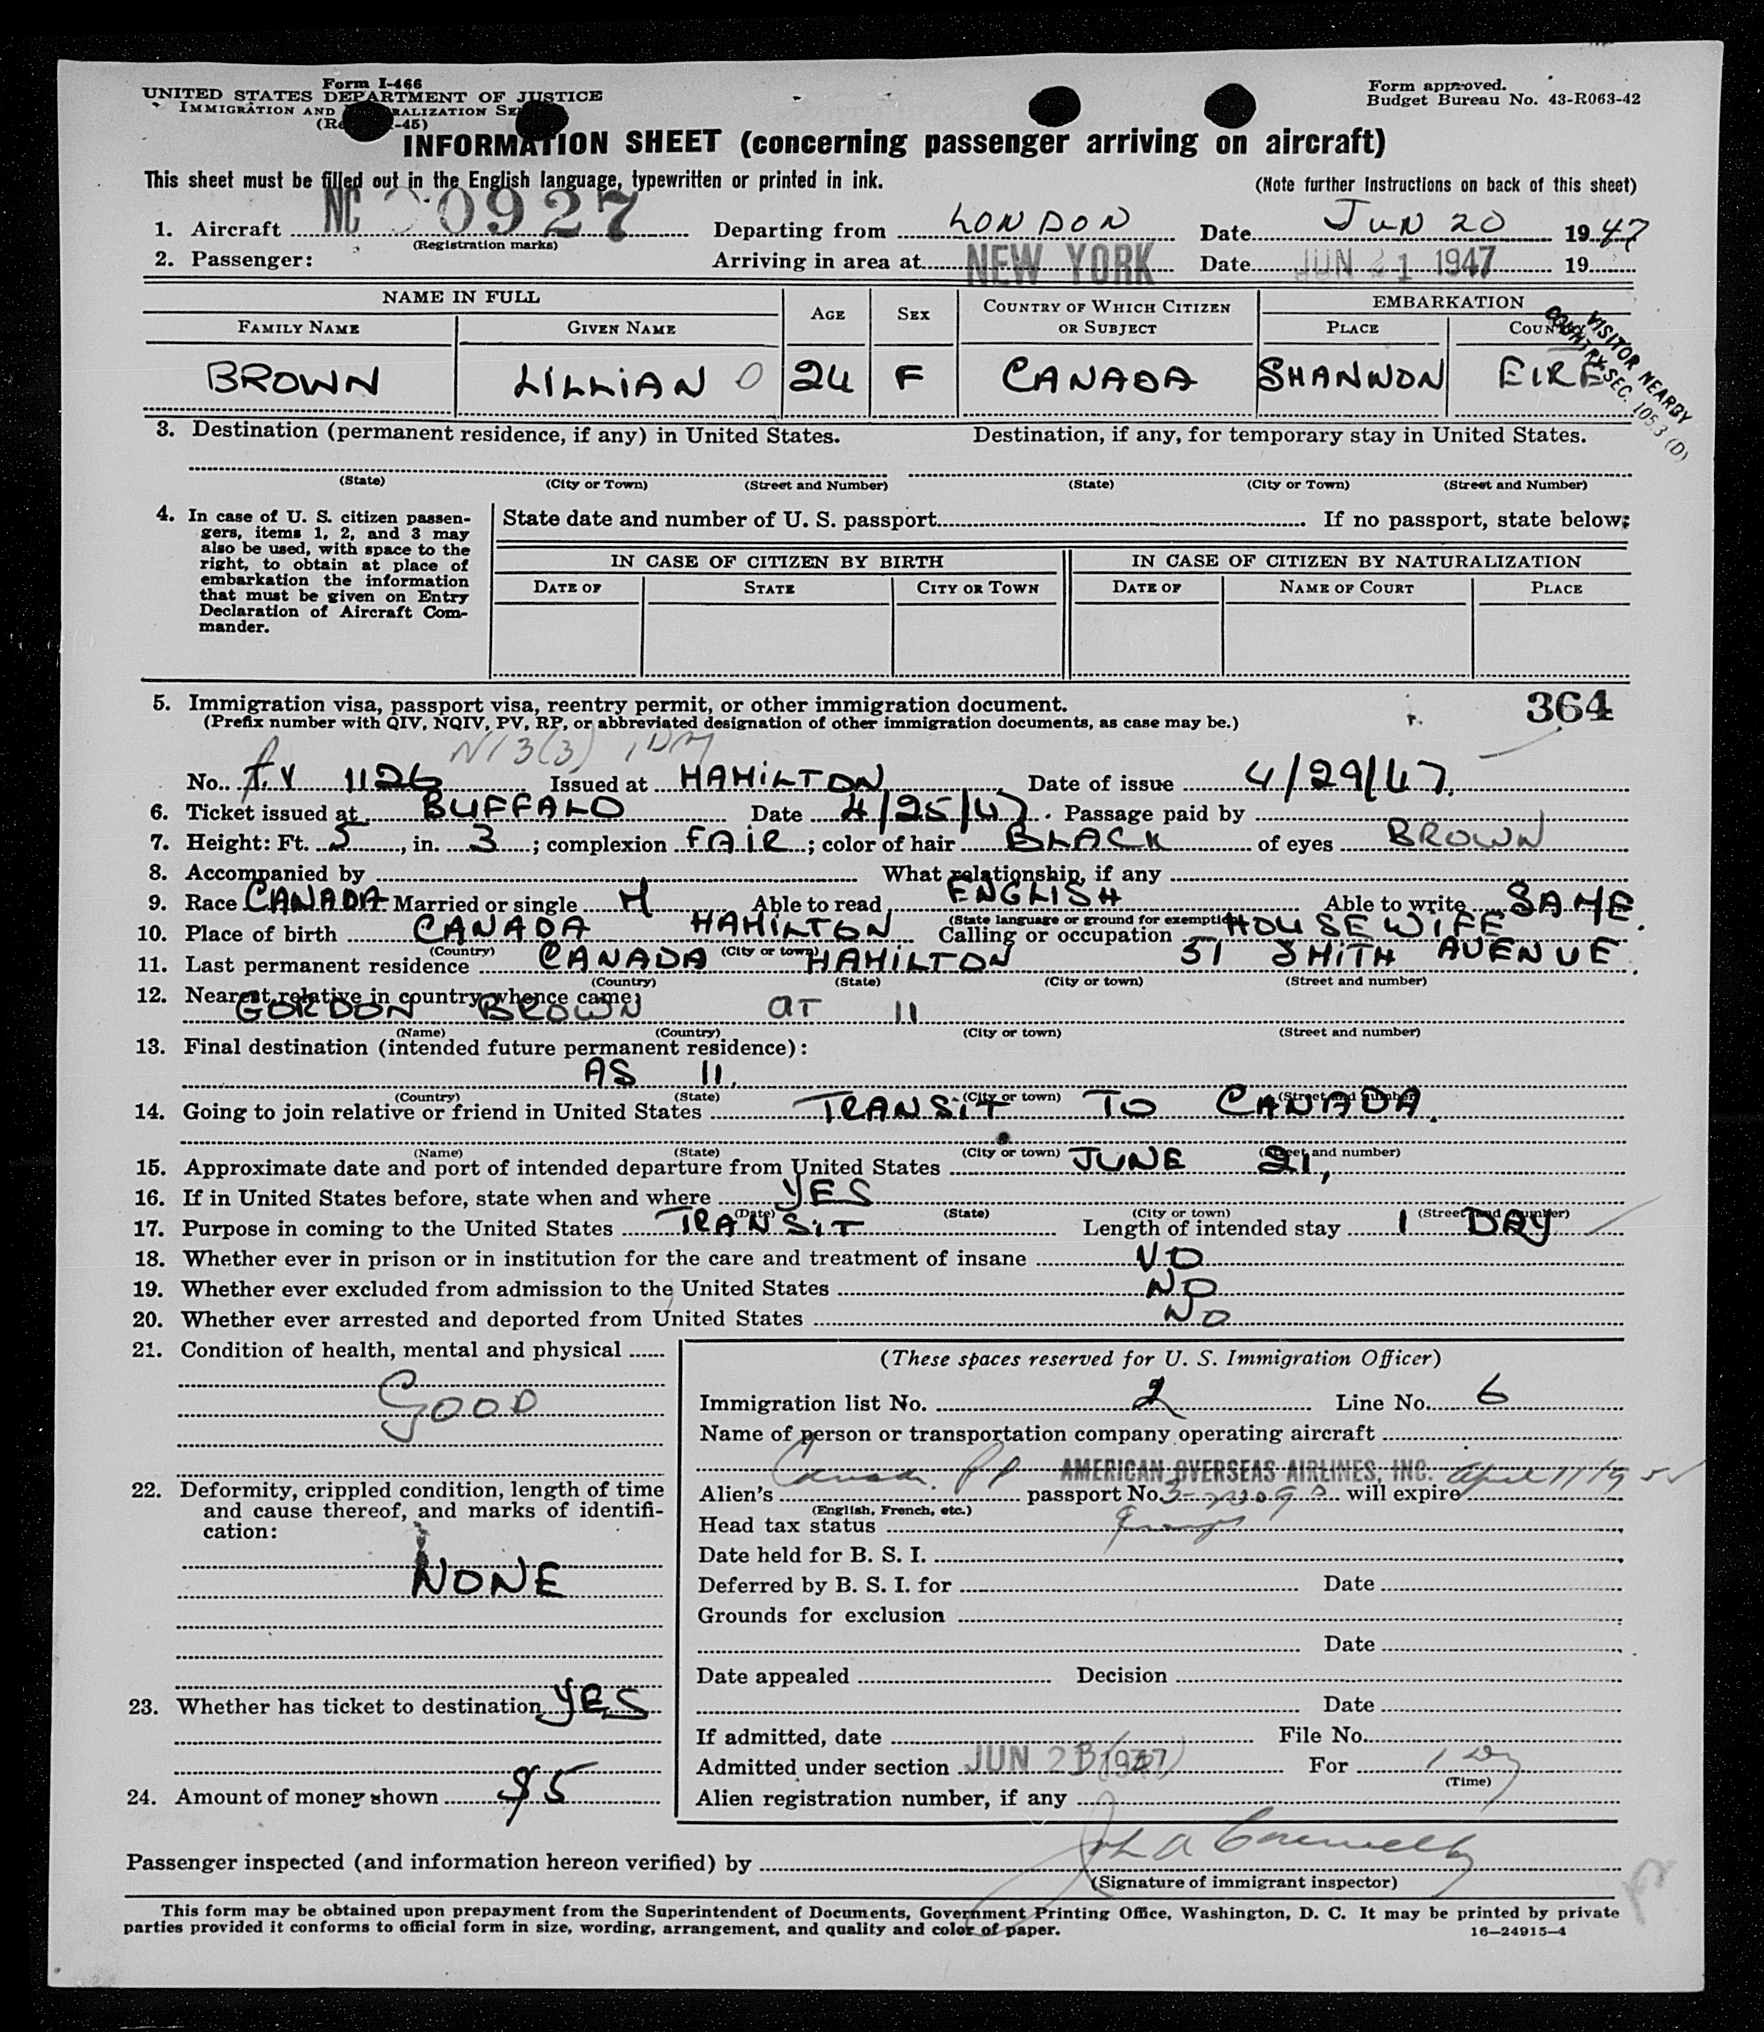 Form I-466
UNITED STATES DEPARTMENT OF JUSTICE
IMMIGRATION AND NATURALIZATION SE
-45)
Form approved.
Budget Bureau No. 43-R063-42
INFORMATION SHEET (concerning passenger arriving on aircraft)
This sheet must be filled out in the English language, typewritten or printed in ink.
(Note further instructions on back of this sheet)
1. Aircraft NC 0927 Departing from LONDON Date JUN 20 1947
(Registration marks)
2. Passenger: Arriving in area at NEW YORK Date JUN 21 1947 19
NAME IN FULL AGE SEX COUNTRY OF WHICH CITIZEN OR SUBJECT EMBARKATION
FAMILY NAME GIVEN NAME PLACE COUN
VISITOR NEARBY
COUNTRY SEC. 105.3 (D)
BROWN LILLIAN O 24 F CANADA SHANNON EIRE
3. Destination (permanent residence, if any) in United States. Destination, if any, for temporary stay in United States.
(State) (City or Town) (Street and Number) (State) (City or Town) (Street and Number)
4. In case of U. S. citizen passen-
gers, items 1, 2, and 3 may
also be used, with space to the
right, to obtain at place of
embarkation the information
that must be given on Entry
Declaration of Aircraft Com-
mander.
State date and number of U. S. passport If no passport, state below:
IN CASE OF CITIZEN BY BIRTH IN CASE OF CITIZEN BY NATURALIZATION
DATE OF STATE CITY OR TOWN DATE OF NAME OF COURT PLACE
5. Immigration visa, passport visa, reentry permit, or other immigration document.
(Prefix number with QIV, NQIV, PV, RP, or abbreviated designation of other immigration documents, as case may be.)
364
No. 1126 Issued at HAMILTON Date of issue 4/29/47.
6. Ticket issued at BUFFALO Date 4/25/47. Passage paid by
7. Height: Ft. 5, in. 3; complexion FAIR; color of hair BLACK of eyes BROWN
8. Accompanied by What relationship, if any
9. Race CANADA Married or single M Able to read ENGLISH Able to write SAME.
(State language or ground for exemption)
10. Place of birth CANADA HAMILTON Calling or occupation HOUSEWIFE
(Country) (City or town)
11. Last permanent residence CANADA HAMILTON 51 SMITH AVENUE.
(Country) (State) (City or town) (Street and number)
12. Nearest relative in country whence came;
GORDON BROWN AT 11
(Name) (Country) (City or town) (Street and number)
13. Final destination (intended future permanent residence):
AS 11.
(Country) (State) (City or town) (Street and number)
14. Going to join relative or friend in United States TRANSIT TO CANADA.
(Name) (State) (City or town) (Street and number)
15. Approximate date and port of intended departure from United States JUNE 21,
16. If in United States before, state when and where YES
(Date) (State) (City or town) (Street and number)
17. Purpose in coming to the United States TRANSIT Length of intended stay 1 DAY
18. Whether ever in prison or in institution for the care and treatment of insane NO
19. Whether ever excluded from admission to the United States NO
20. Whether ever arrested and deported from United States NO
21. Condition of health, mental and physical
GOOD
22. Deformity, crippled condition, length of time
and cause thereof, and marks of identifi-
cation:
NONE
23. Whether has ticket to destination YES
24. Amount of money shown $5
(These spaces reserved for U. S. Immigration Officer)
Immigration list No. 2 Line No. 6
Name of person or transportation company operating aircraft
AMERICAN OVERSEAS AIRLINES, INC.
Alien's passport No. will expire
(English, French, etc.)
Head tax status
Date held for B. S. I.
Deferred by B. S. I. for Date
Grounds for exclusion
Date
Date appealed Decision
Date
If admitted, date File No.
Admitted under section JUN 1947 For 1 Day
(Time)
Alien registration number, if any
Passenger inspected (and information hereon verified) by
(Signature of immigrant inspector)
This form may be obtained upon prepayment from the Superintendent of Documents, Government Printing Office, Washington, D. C. It may be printed by private
parties provided it conforms to official form in size, wording, arrangement, and quality and color of paper.
16—24915-4